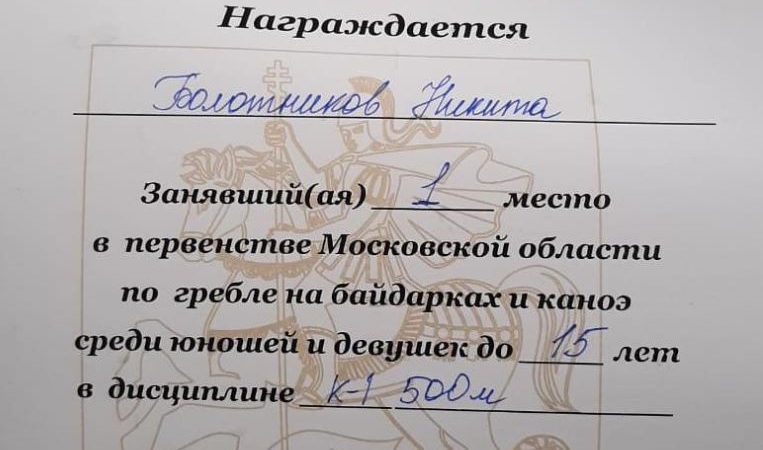 Награждается
Болотников Никита
Занявший(ая) 1 место
в первенстве Московской области
по гребле на байдарках и каноэ
среди юношей и девушек до 15 лет
в дисциплине К-1 500м